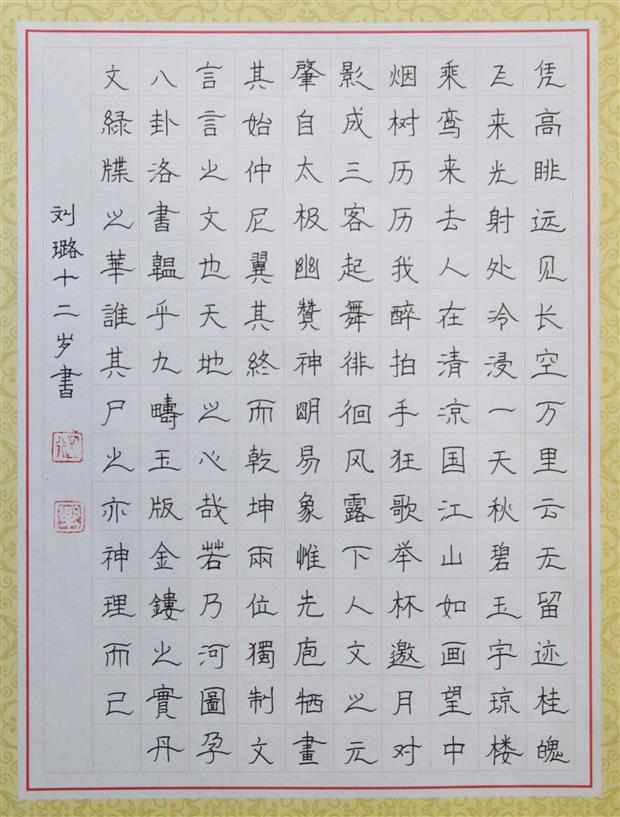 凭高眺远见长空万里云无留迹桂魄
飞来光射处冷浸一天秋碧玉宇琼楼
乘鸾来去人在清凉国江山如画望中
烟树历历我醉拍手狂歌举杯邀月对
影成三客起舞徘徊风露下人文之元
肇自太极幽贊神明易象惟先庖牺畫
其始仲尼翼其終而乾坤兩位獨制文
言言之文也天地之心哉若乃河圖孕
八卦洛書韞乎九疇玉版金鏤之實丹
文緑牒之華誰其尸之亦神理而已
刘璐十二岁書